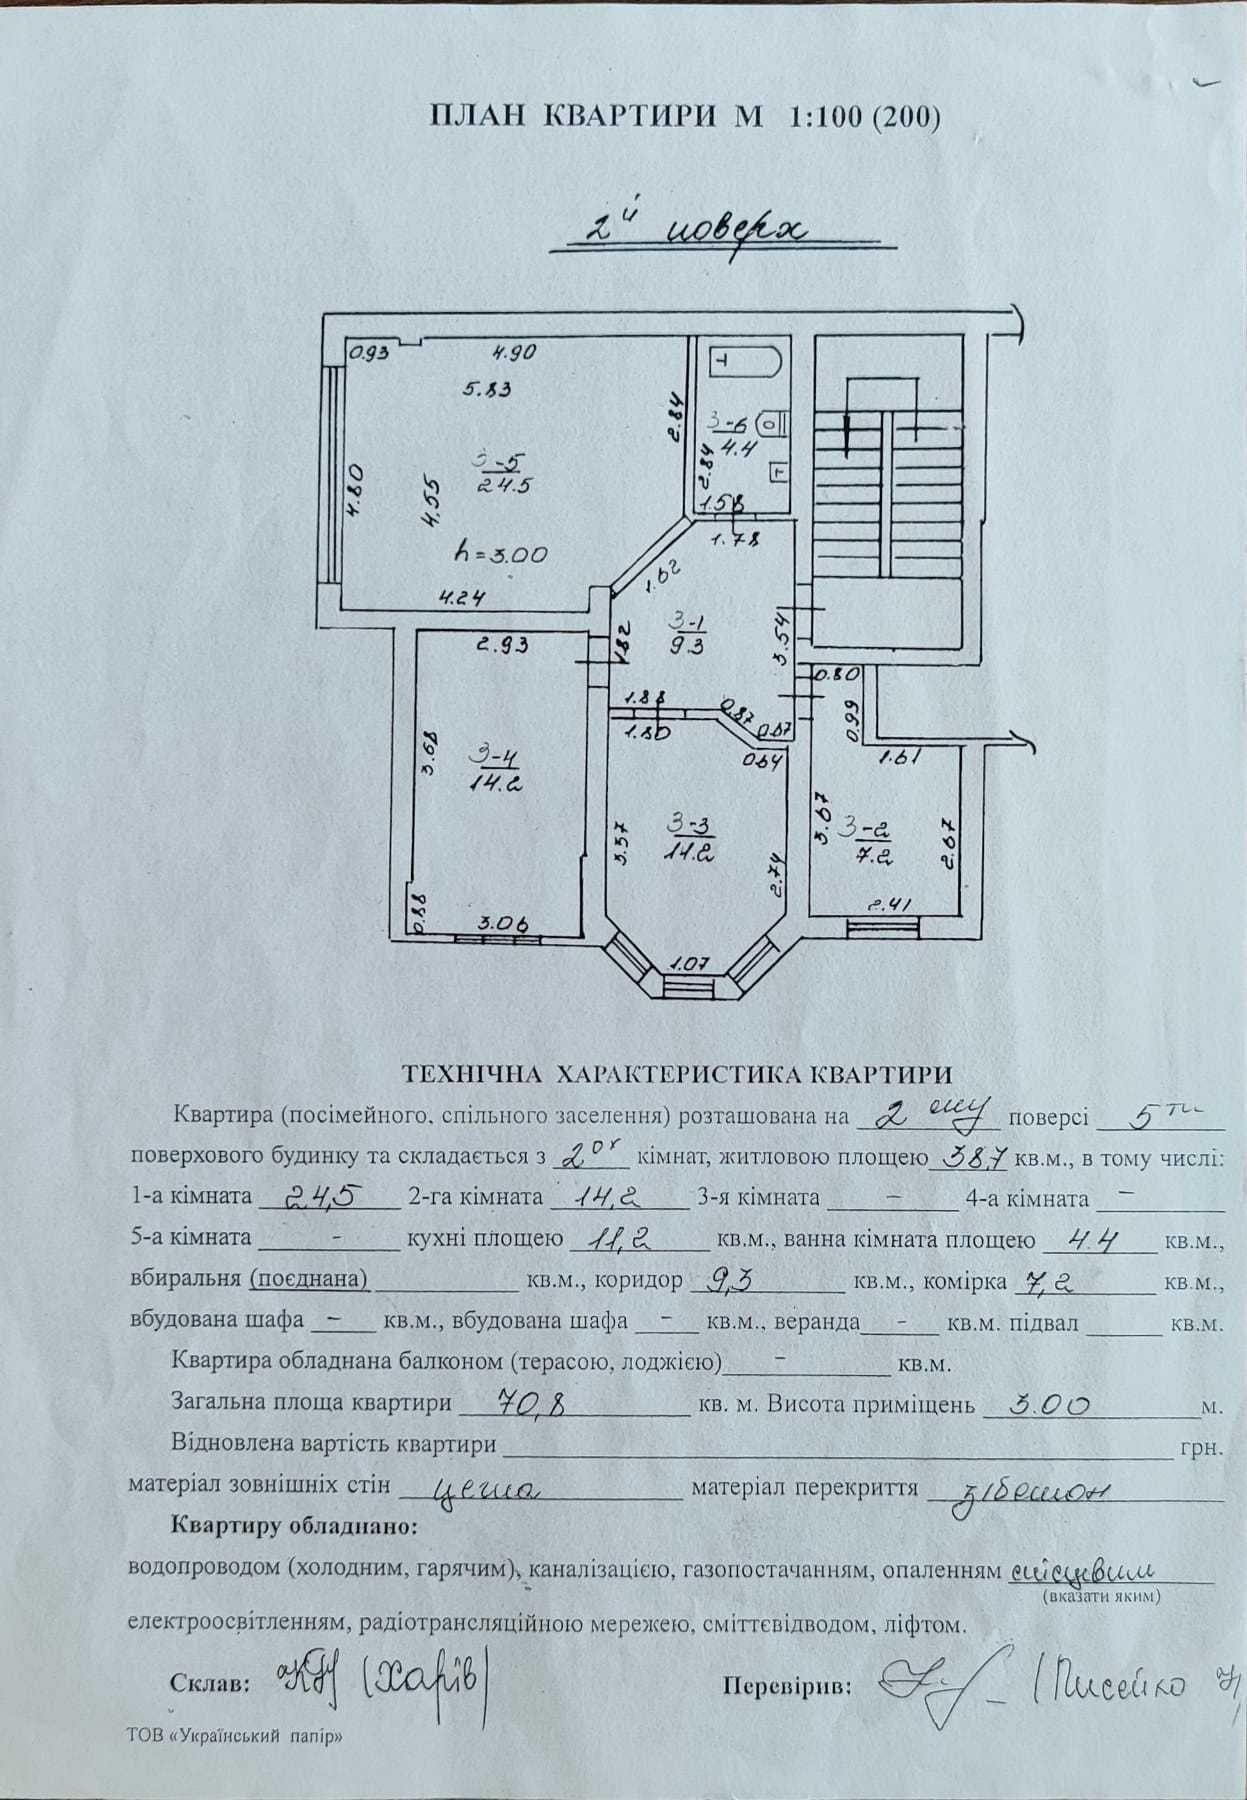 ПЛАН КВАРТИРИ М 1:100 (200)
2й поверх
0.93 4.90
5.83
2.84
3-6
4.4
2.84
3-5
24.5
4.80
4.55
1.58
h = 3.00
1.78
1.62
4.24
3-1
9.3
3.54
1.82
2.93
0.80
1.88
0.87
0.67
0.99
1.80
0.64
1.61
3.68
3-4
14.2
3-3
11.2
3.57
3.67
3-2
7.2
2.67
2.74
0.88
3.06
2.41
1.07
ТЕХНІЧНА ХАРАКТЕРИСТИКА КВАРТИРИ
Квартира (посімейного, спільного заселення) розташована на 2 ому поверсі 5 ти
поверхового будинку та складається з 2ох кімнат, житловою площею 38,7 кв.м., в тому числі:
1-а кімната 24,5 2-га кімната 14,2 3-я кімната – 4-а кімната –
5-а кімната - кухні площею 11,2 кв.м., ванна кімната площею 4.4 кв.м.,
вбиральня (поєднана) кв.м., коридор 9,3 кв.м., комірка 7,2 кв.м.,
вбудована шафа – кв.м., вбудована шафа – кв.м., веранда - кв.м. підвал кв.м.
Квартира обладнана балконом (терасою, лоджією) – кв.м.
Загальна площа квартири 70,8 кв. м. Висота приміщень 3.00 м.
Відновлена вартість квартири грн.
матеріал зовнішніх стін цегла матеріал перекриття з/бетон
Квартиру обладнано:
водопроводом (холодним, гарячим), каналізацією, газопостачанням, опаленням місцевим
(вказати яким)
електроосвітленням, радіотрансляційною мережею, сміттєвідводом, ліфтом.
Склав: (Харів) Перевірив: (Писейко
ТОВ «Український папір»